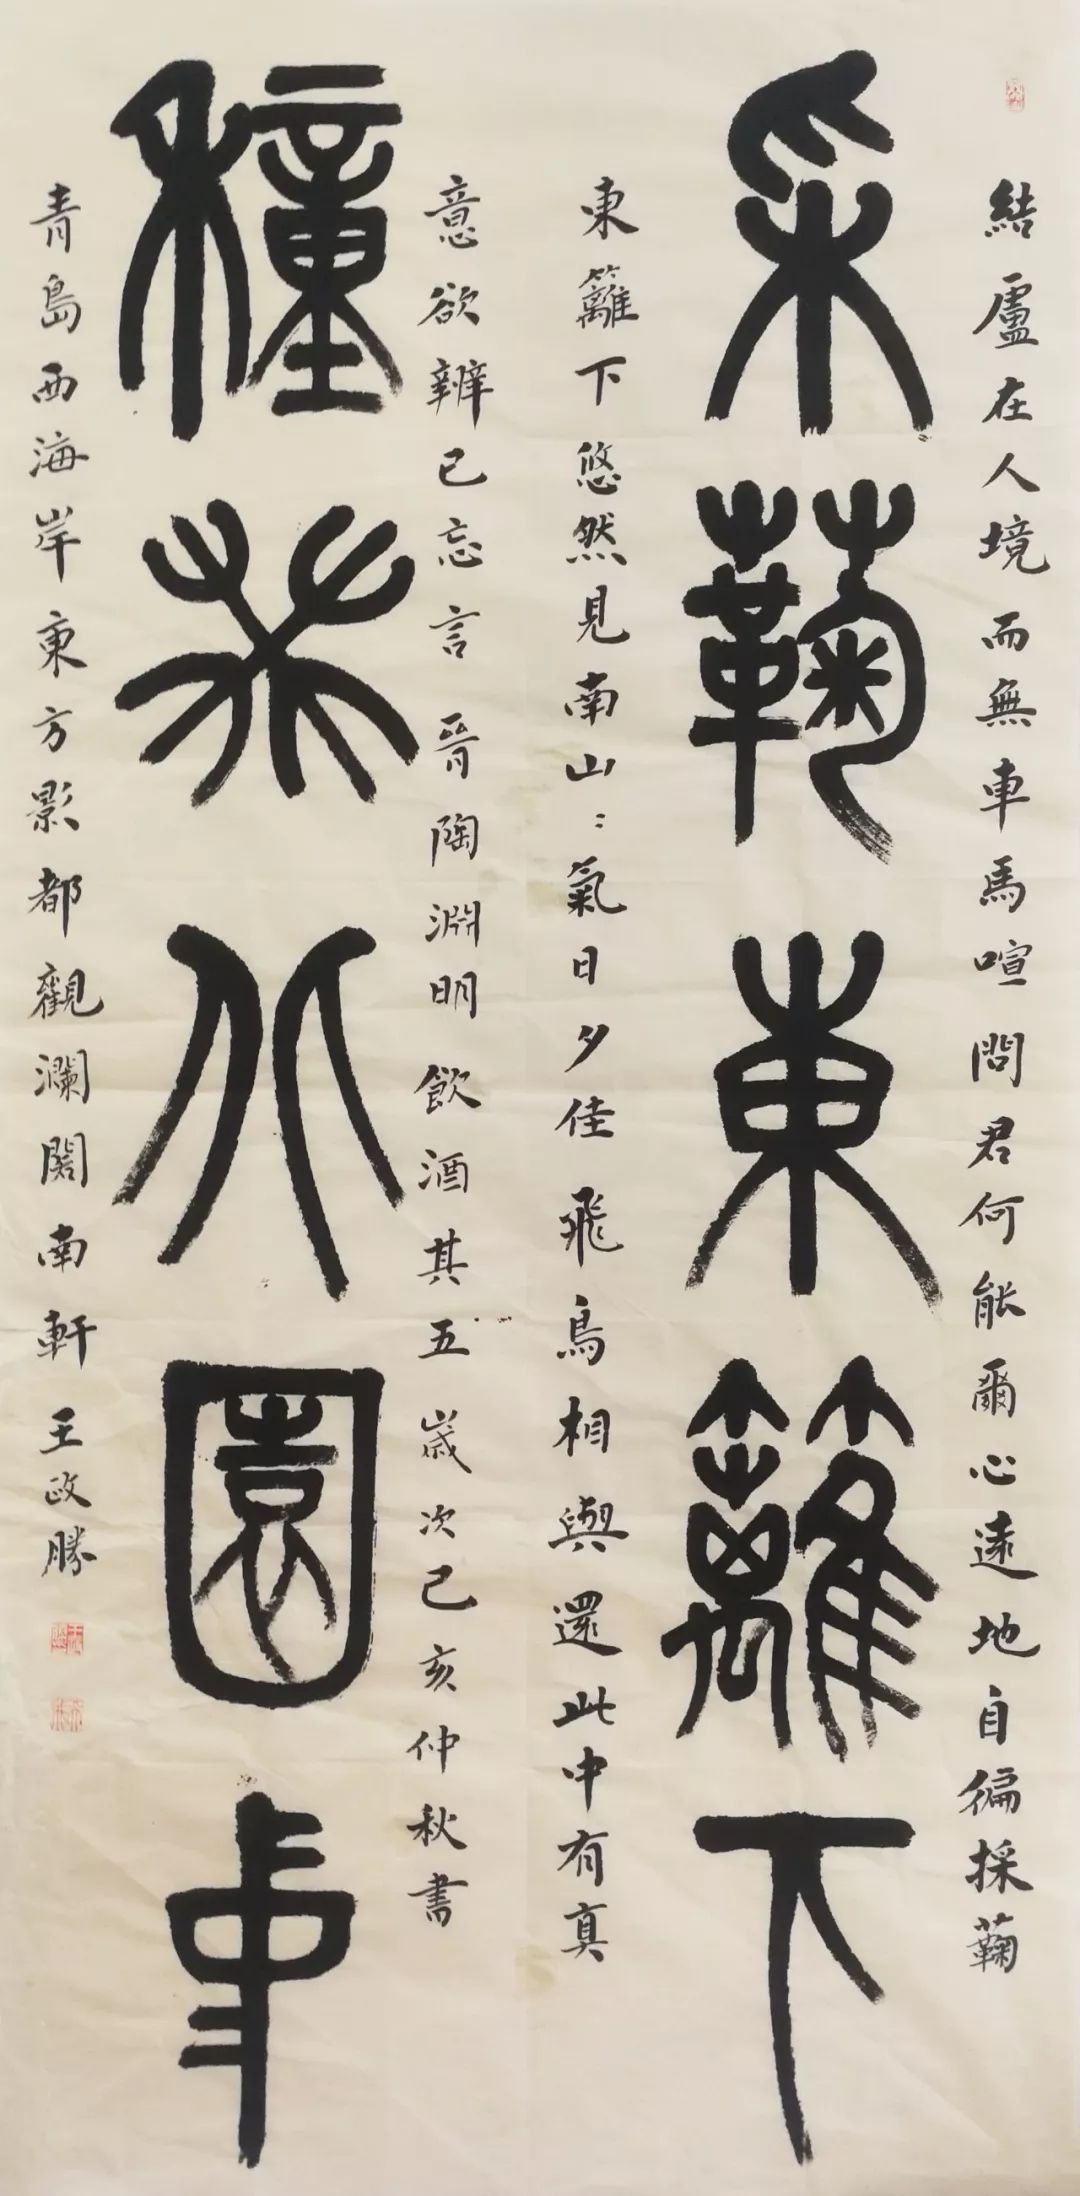 結盧在人境而無車馬喧問君何能爾心遠地自偏採蘜
采蘜東籬下
東籬下悠然見南山〻氣日夕佳飛鳥相與還此中有真
意欲辨已忘言 晉陶淵明飲酒其五歲次己亥仲秋書
穜園事
青島西海岸東方影都觀瀾閣南軒王政勝